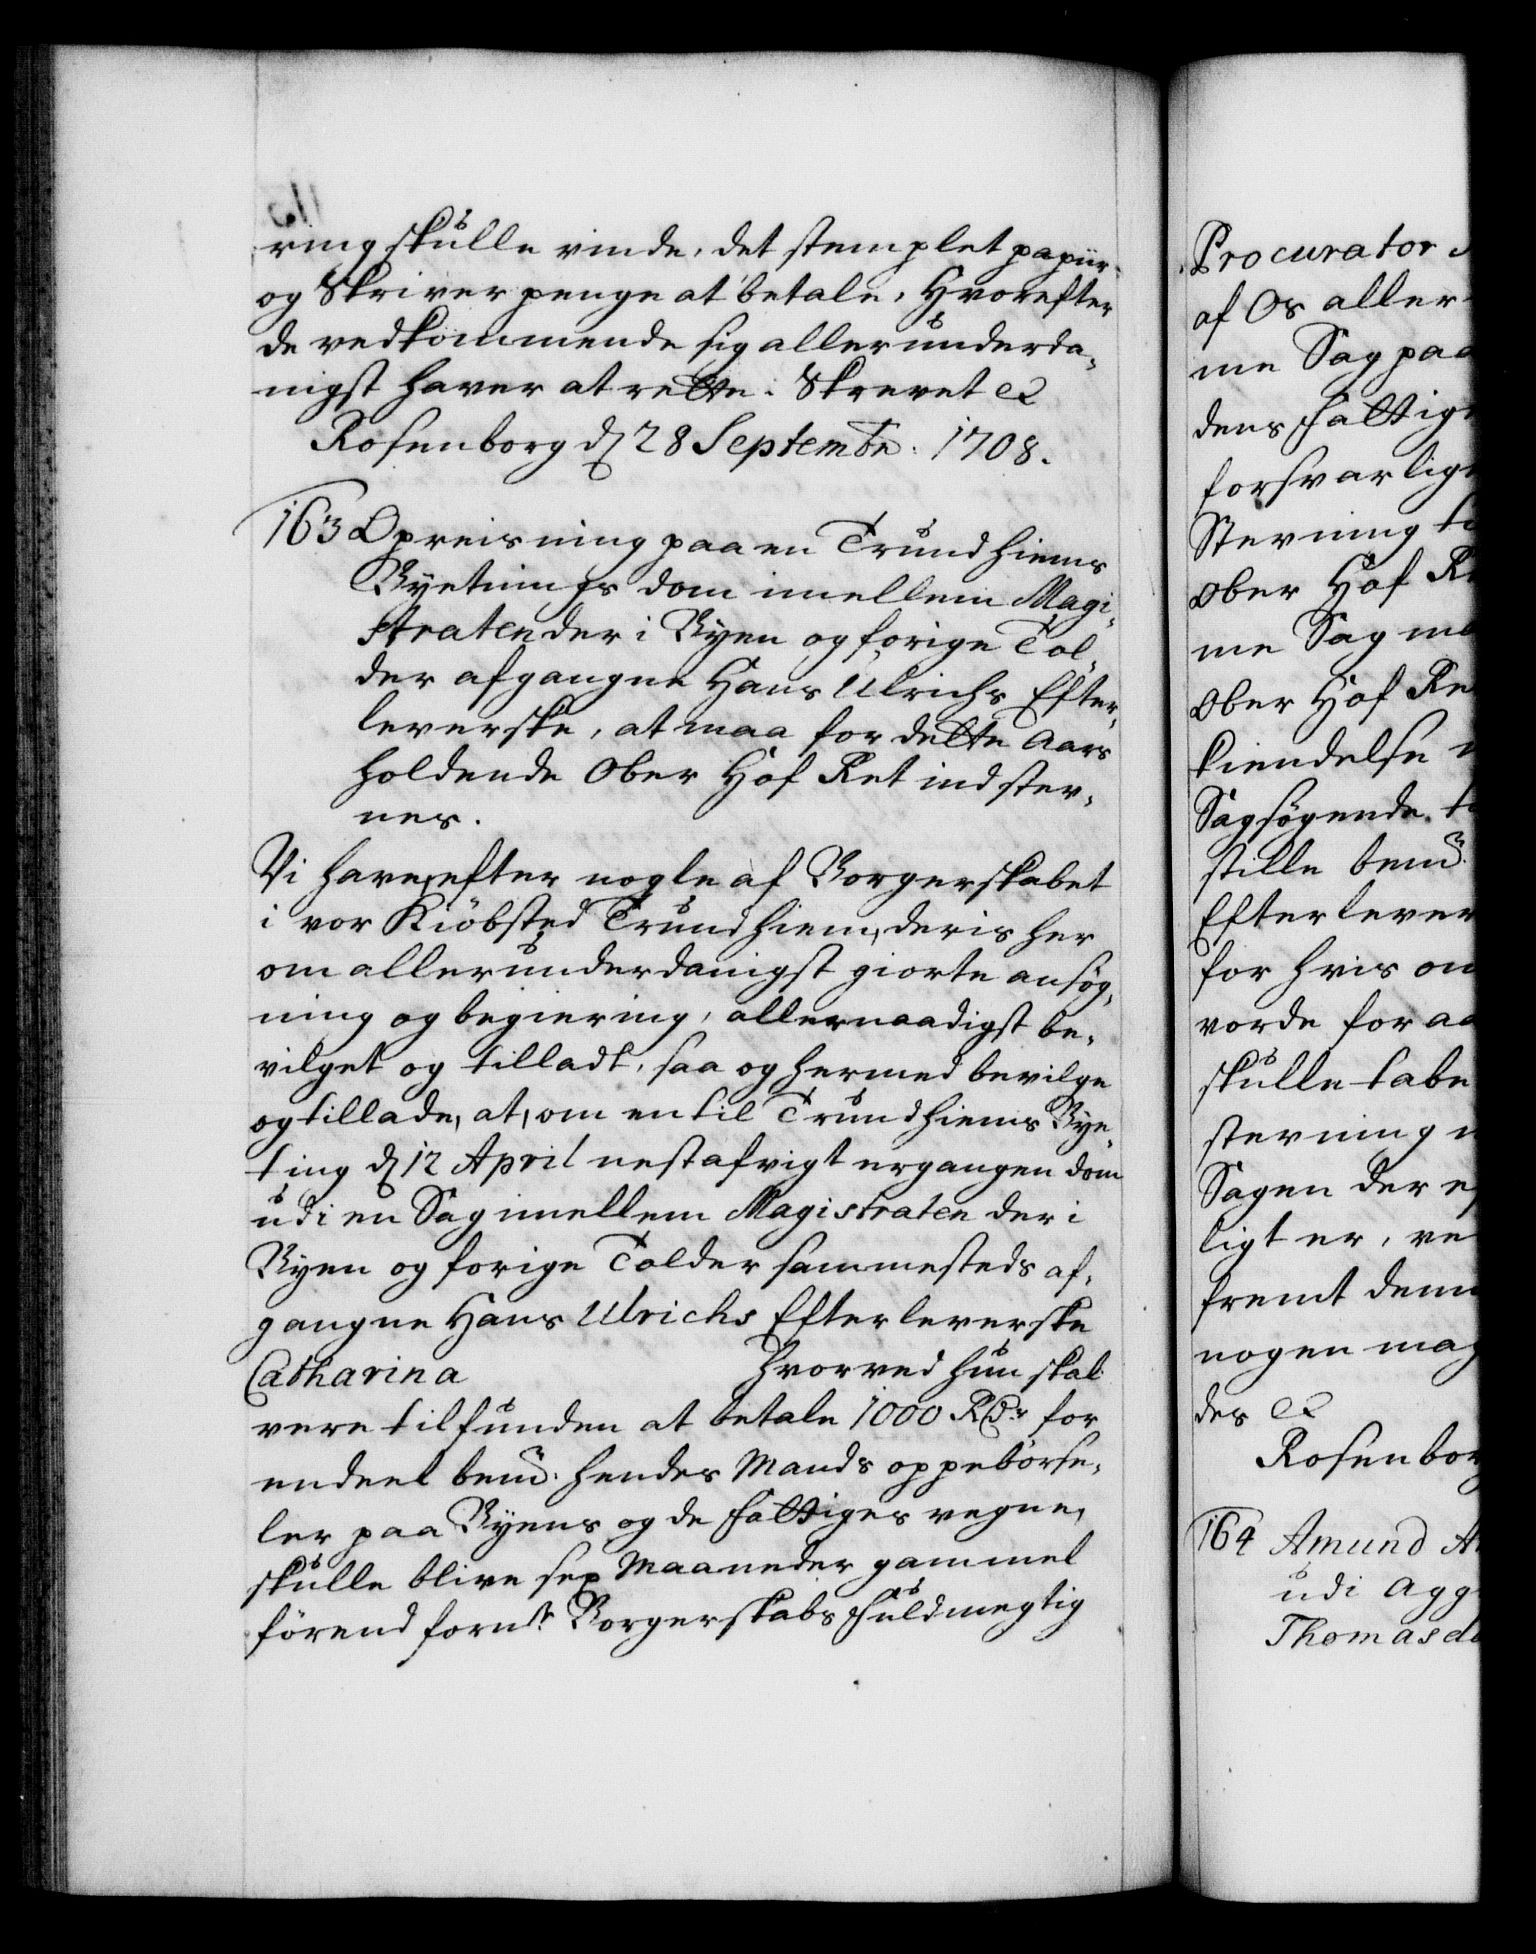 ring skulle vinde, det stemplet papiir
og Skriver penge at betale, Hvorefter
de vedkommende sig allerunderda-
nigst haver at rette. Skrevet &
Rosenborg d 28 Septembr: 1708.
163 Opreisning paa en Trundhiems
Byetings dom imellem Magi-
straten der i Byen og forige Tol-
der afgangne Hans Ulrichs Efter-
leverske, at maa for dette Aars
holdende Ober Hof Ret indstev-
nes.
Vi have, efter nogle af Borgerskabet
i vor Kiöbsted Trundhiem, deris her
om allerunderdanigst giorte ansøg-
ning og begiering, allernaadigst be-
vilget og tilladt, saa og hermed bevilge
og tillade, at, om en til Trundhiems Bye-
ting d 12 April nestafvigt ergangen dom
udi en Sag imellem Magistraten der i
Byen og forige Tolder sammesteds af-
gangne Hans Ulrichs Efterleverske
Catharina hvorved hun skal
vere tilfunden at betale 1000 Rdr for
endeel bemt. hendes Mands oppebörse-
ler paa Byens og de fattiges vegne,
skulle blive sex Maaneder gammel
förend fornt. Borgerskabs fuldmegtig
Procurator
af Os aller-
me Sag paa
dens fattig
forsvarlig
Stevning
Ober Hof
me Sag
Ober Hof Re
kiendelse
Sagsøgende
stille bemt.
Efterlever
for hvis
vorde for
skulle tabe
stevning
Sagen der
ligt er, ve
fremt
nogen
des &
Rosenborg
164 Amund
udi Agg
Thomas